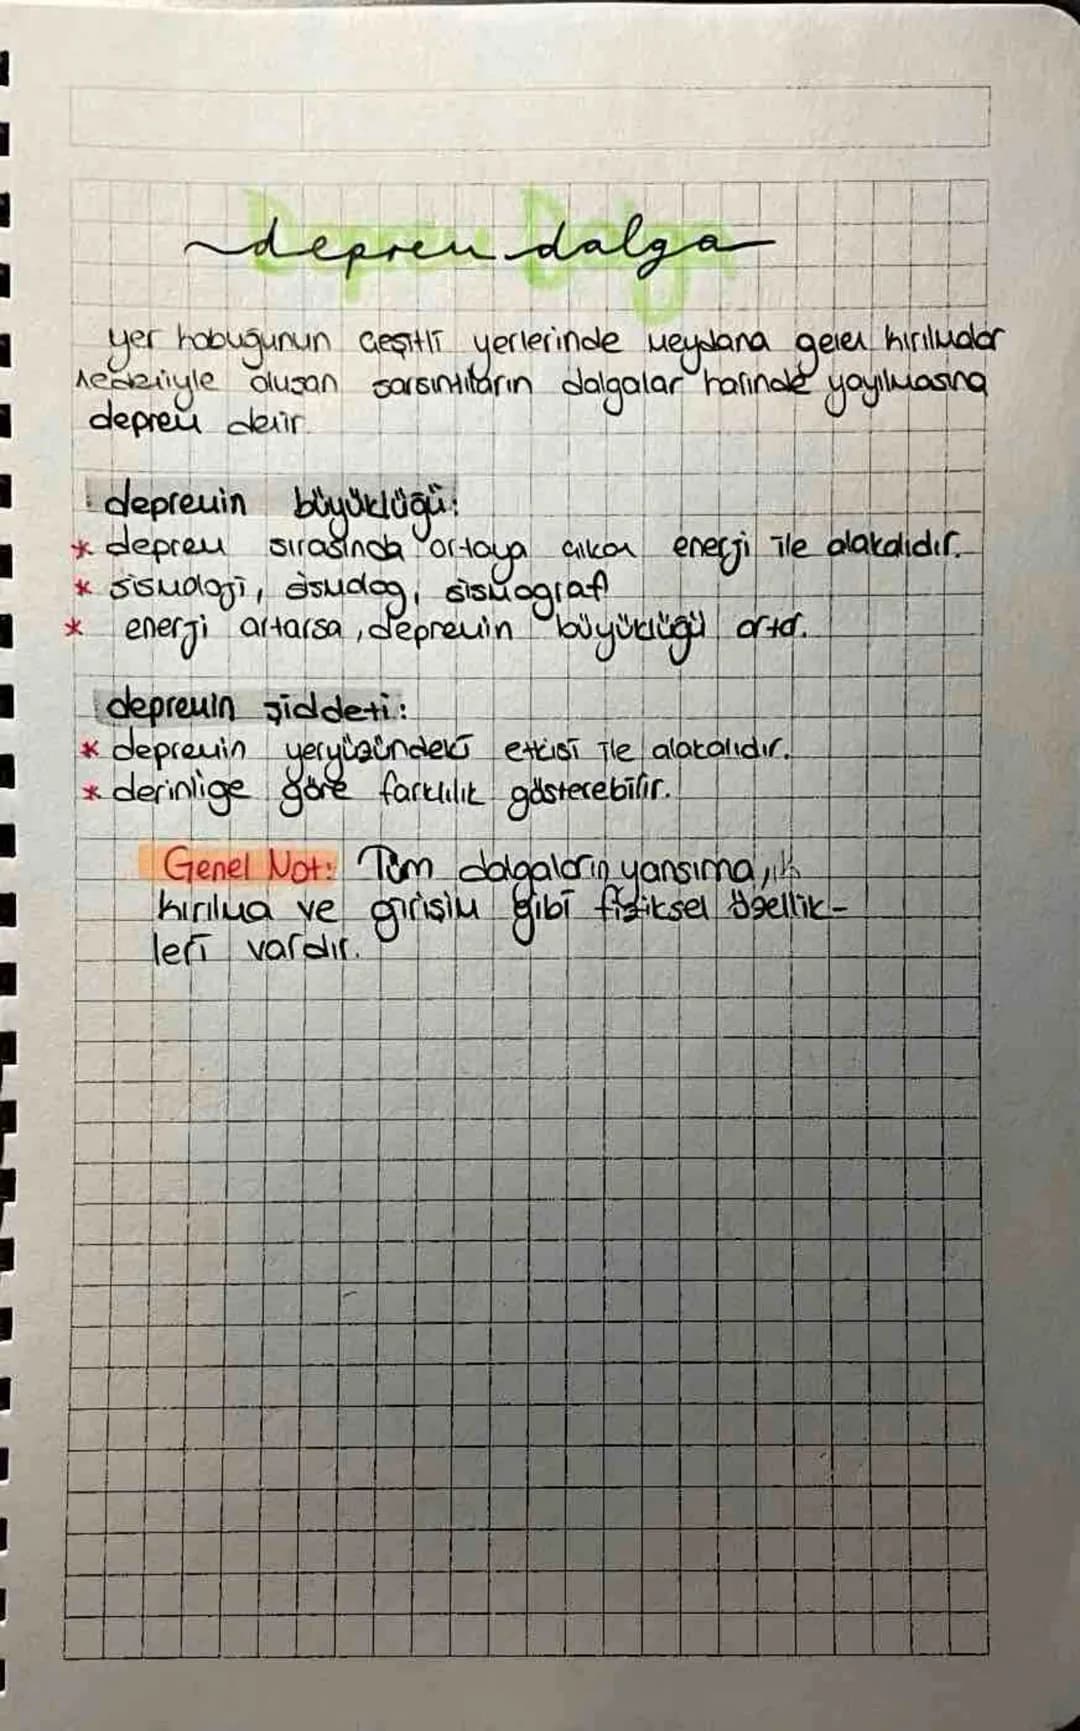 deprem dalga
Deprem Dalga
yer kabuğunun çeşitli yerlerinde meydana gelen kırılmalar
nedeniyle oluşan sarsıntıların dalgalar halinde yayılmasına
deprem denir.
depremin büyüklüğü:
* deprem sırasında ortaya çıkan enerji ile alakalıdır.
* sismoloji, sismolog, sismograf
* enerji artarsa, depremin büyüklüğü artar.
depremin şiddeti:
* depremin yeryüzündeki etkisi ile alakalıdır.
* derinlige göre farklılık gösterebilir.
Genel Not: Tüm dalgaların yansıma,
kırılma ve girişim gibi fiziksel özellik-
leri vardır.